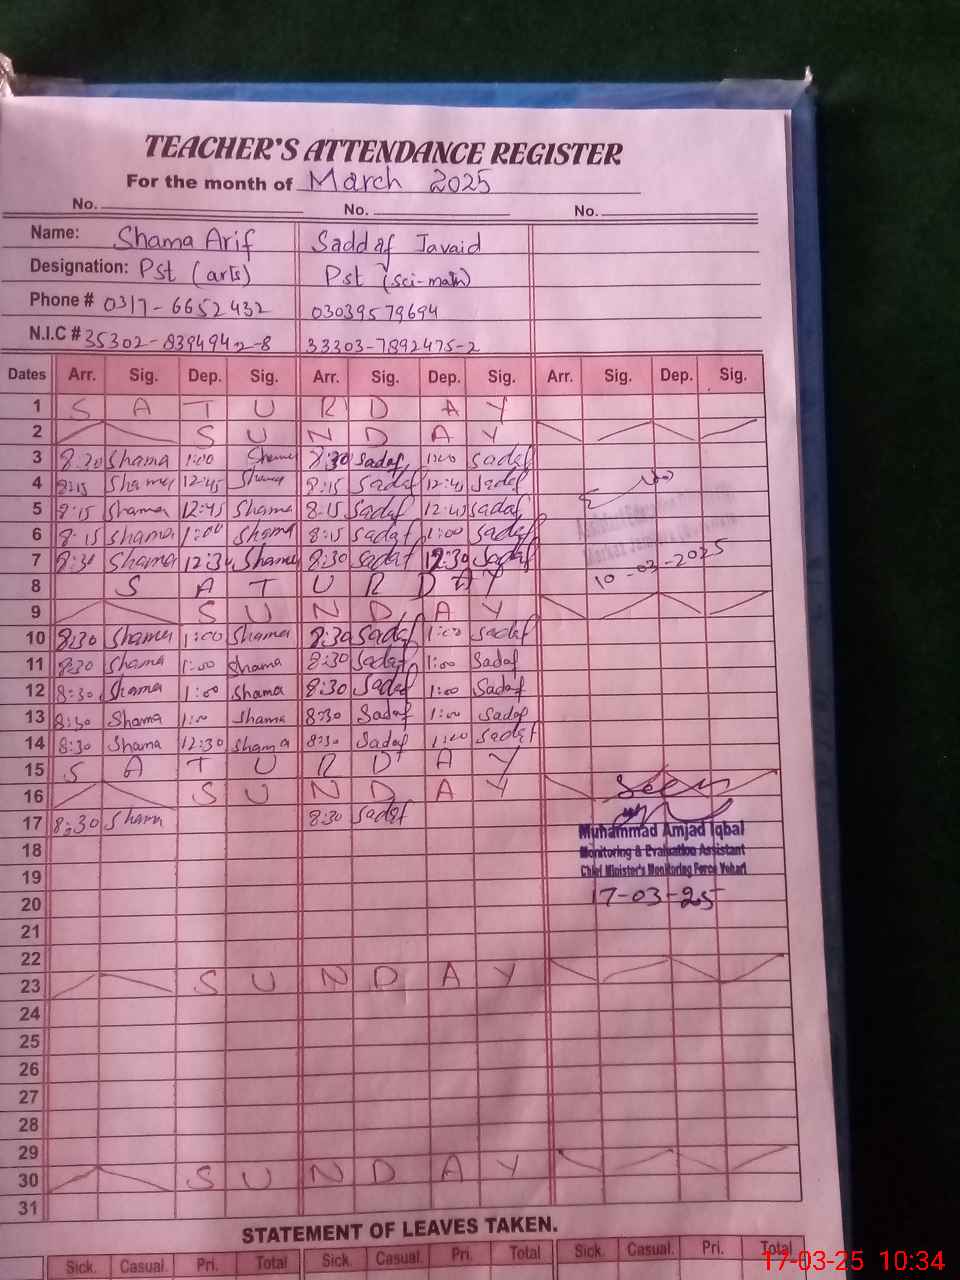 TEACHER'S ATTENDANCE REGISTER
For the month of March 2025
No. No. No.
Name: Shama Arif Saddaf Javaid
Designation: Pst (arts) Pst (sci-math)
Phone # 0317-6652432 03039579694
N.I.C # 35302-8394942-8 33303-7892475-2
Dates Arr. Sig. Dep. Sig. Arr. Sig. Dep. Sig. Arr. Sig. Dep. Sig.
1 S A T U R D A Y
2 S U N D A Y
3 8:30 Shama 1:00 Shama 8:30 Sadaf 1:00 Sadaf
4 8:15 Shama 12:45 Shama 8:15 Sadaf 12:45 Sadaf
5 8:15 Shama 12:45 Shama 8:15 Sadaf 12:45 Sadaf
6 8:15 Shama 1:00 Shama 8:15 Sadaf 1:00 Sadaf
7 8:30 Shama 12:30 Shama 8:30 Sadaf 12:30 Sadaf
10-03-2025
8 S A T U R D A Y
9 S U N D A Y
10 8:30 Shama 1:00 Shama 8:30 Sadaf 1:00 Sadaf
11 8:30 Shama 1:00 Shama 8:30 Sadaf 1:00 Sadaf
12 8:30 Shama 1:00 Shama 8:30 Sadaf 1:00 Sadaf
13 8:30 Shama 1:00 Shama 8:30 Sadaf 1:00 Sadaf
14 8:30 Shama 12:30 Shama 8:30 Sadaf 1:00 Sadaf
15 S A T U R D A Y
16 S U N D A Y Seen
17 8:30 Sham 8:30 Sadaf
Muhammad Amjad Iqbal
18 Monitoring & Evaluation Assistant
19 Chief Minister's Monitoring Force Vehari
20 17-03-25
21
22
23 S U N D A Y
24
25
26
27
28
29
30 S U N D A Y
31
STATEMENT OF LEAVES TAKEN.
Sick. Casual. Pri. Total Sick. Casual. Pri. Total Sick. Casual. Pri. Total
17-03-25 10:34